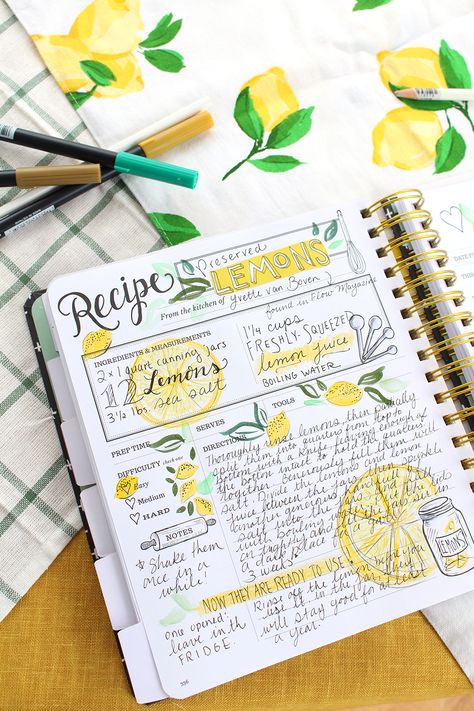 Recipe
Preserved
LEMONS
From the kitchen of Yvette van Boven
found in Flow Magazine
INGREDIENTS & MEASUREMENTS
2 x 1 quart canning jars
12 Lemons
3 1/2 lbs. sea salt
1 1/4 cups
FRESHLY-SQUEEZED
lemon juice
BOILING WATER
PREP TIME
SERVES
TOOLS
DIFFICULTY check one
Easy
Medium
HARD
NOTES
* Shake them
once in a
while!
One opened,
leave in
FRIDGE.
DIRECTIONS
Thoroughly rinse lemons, then partially
split them into quarters from top to
bottom with a knife, leaving enough at
the bottom intact to hold the quarters
together. Generously fill lemons with
salt. Divide the lemons and lemon
between the jars and
another generous
salt into the jars
boiling
a dark place for
3 weeks
NOW THEY ARE READY TO USE
Rinse off the lemon before you
use it in the
will stay good for at least
a year.
LEMONS
336
DATE